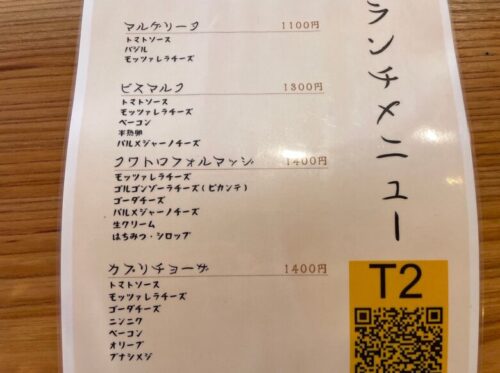 ランチメニュー
マルゲリータ 1100円
トマトソース
バジル
モッツァレラチーズ
ビスマルク 1300円
トマトソース
モッツァレラチーズ
ベーコン
半熟卵
パルメジャーノチーズ
クワトロフォルマッジ 1400円
モッツァレラチーズ
ゴルゴンゾーラチーズ(ピカンテ)
ゴーダチーズ
パルメジャーノチーズ
生クリーム
はちみつ・シロップ
カプリチョーザ 1400円
トマトソース
モッツァレラチーズ
ゴーダチーズ
ニンニク
ベーコン
オリーブ
ブナシメジ
T2